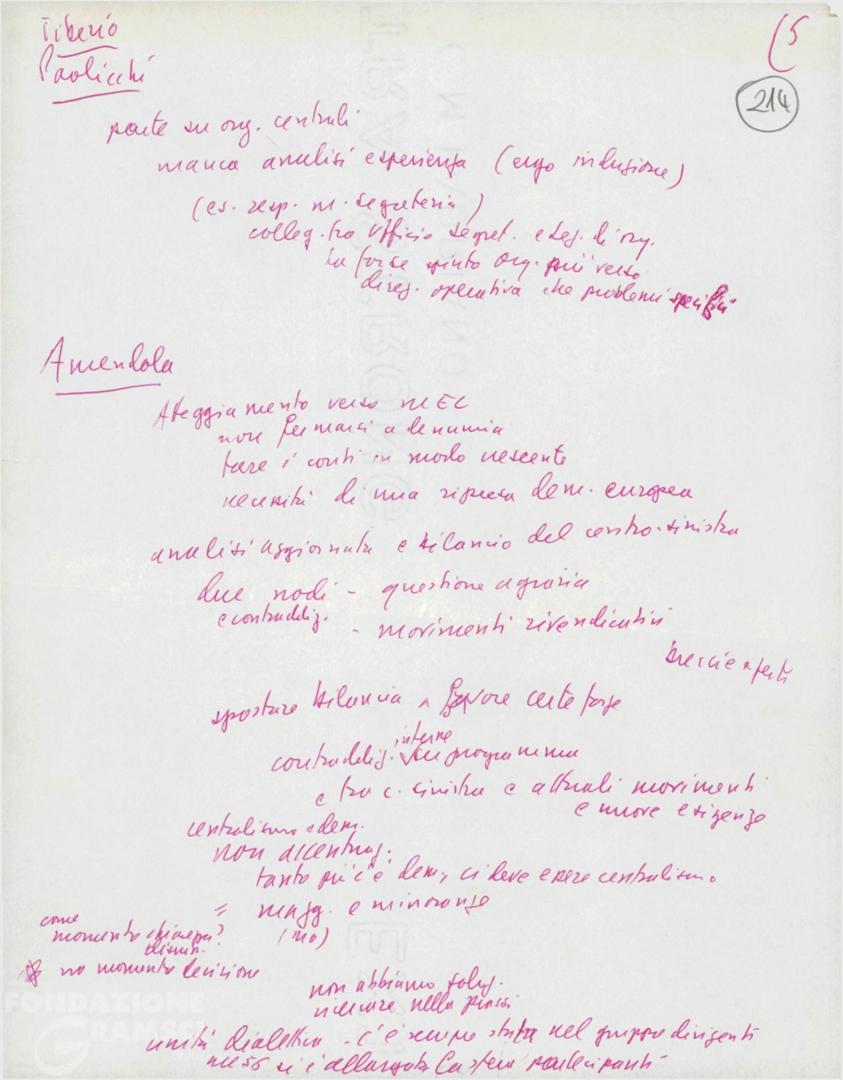 Tiberio
(5
214
Paolicchi
parte su org. centrali
manca analisi esperienza (ergo inclusione)
(es. resp. m. segreteria)
colleg. tra Ufficio segret. e sez. di org.
ha forse spinto org. più verso
direz. operativa che problemi specifici
Amendola
Atteggiamento verso MEC
non fermarci a denuncia
fare i conti in modo
necessità di una ripresa dem. europea
analisi aggiornata e bilancio del centro-sinistra
due nodi - questione agraria
e contraddiz.
- movimenti rivendicativi
brecce aperte
spostare bilancia a favore certe forze
interne
contraddiz. su programma
e tra c. sinistra e attuali movimenti
e nuove esigenze
centralismo dem.
non accentraz.
tanto più c'è dem., ci deve essere centralismo
= magg. e minoranze
come
momento
(no)
discuss.
no momento decisione
non abbiamo
ricercare nella prassi
unità dialettica - c'è sempre stata nel gruppo dirigenti
si è allargata partecipanti
FONDAZIONE
GRAMSCI